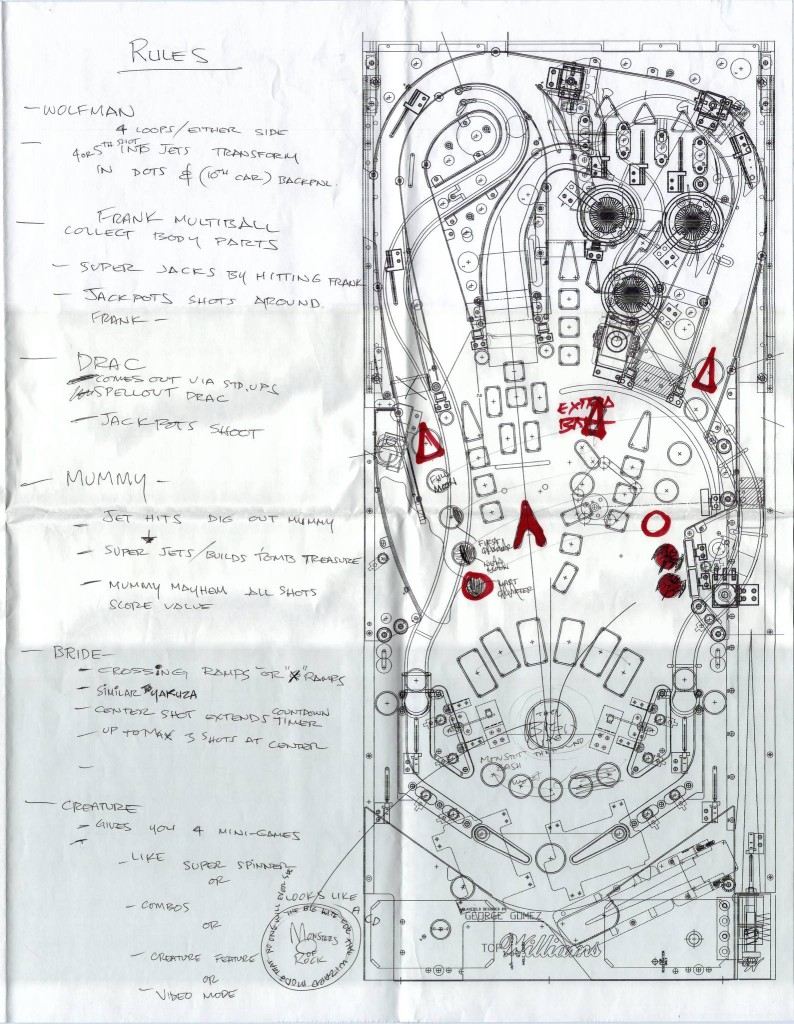 RULES
— WOLFMAN
4 LOOPS/EITHER SIDE
— 4 OR 5TH SHOT INTO JETS TRANSFORM
IN DOTS & (10TH CAR) BACKPNL.
— FRANK MULTIBALL
COLLECT BODY PARTS
- SUPER JACKS BY HITTING FRANK
- JACKPOTS SHOTS AROUND
FRANK -
— DRAC
COMES OUT VIA STD. UPS
SPELLOUT DRAC
- JACKPOTS SHOOT
— MUMMY —
- JET HITS DIG OUT MUMMY
- SUPER JETS/BUILDS TOMB TREASURE
- MUMMY MAYHEM ALL SHOTS
SCORE VALUE
— BRIDE —
- CROSSING RAMPS OR "X" RAMPS
- SIMILAR TO YAKUZA
- CENTER SHOT EXTENDS COUNTDOWN
TIMER
- UP TO MAX 3 SHOTS AT CENTER
-
— CREATURE
- GIVES YOU 4 MINI-GAMES
-
- LIKE SUPER SPINNER
OR
- COMBOS
OR
- CREATURE FEATURE
OR
- VIDEO MODE
LOOKS LIKE
A CD
THE BIG NITE FOR THE WIZARD MODE THAT NO ONE WILL EVER SEE
MONSTERS
OF
ROCK
EXTRA
BALL
FULL
MOON
FIRST
QUARTER
NEW
MOON
LAST
QUARTER
MONSTER
BASH
THE
BAND
GEORGE GOMEZ
TOP
Williams